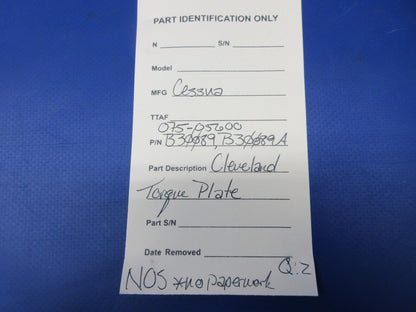 PART IDENTIFICATION ONLY
N S/N
Model
MFG Cessna
TTAF
075-05600
P/N B30089, B30089A
Part Description Cleveland
Torque Plate
Part S/N
Date Removed
NOS *no paperwork Q:2